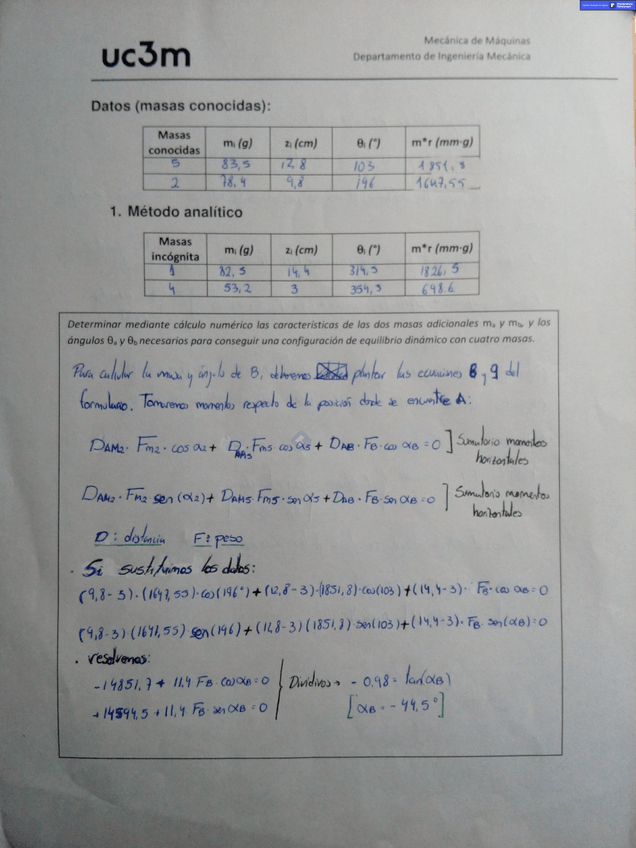 uc3m
Mecánica de Máquinas
Departamento de Ingeniería Mecánica
Datos (masas conocidas):
Masas conocidas mᵢ (g) zᵢ (cm) θᵢ (°) m*r (mm·g)
5 83,5 12,8 103 1851,8
2 78,4 9,8 196 1647,55
1. Método analítico
Masas incógnita mᵢ (g) zᵢ (cm) θᵢ (°) m*r (mm·g)
1 82,5 14,4 314,5 1826,5
4 53,2 3 354,5 698,6
Determinar mediante cálculo numérico las características de las dos masas adicionales mₐ y m_b, y los
ángulos θₐ y θ_b necesarios para conseguir una configuración de equilibrio dinámico con cuatro masas.
Para calcular la masa y ángulo de B, debemos plantar las ecuaciones 8 y 9 del
formulario. Tomaremos momentos respecto de la posición donde se encuentre A:
D_AM2 · F_m2 · cos α2 + D_AM5 · F_m5 · cos α5 + D_AB · F_B · cos α_B = 0 ] Sumatorio momentos
horizontales
D_AM2 · F_M2 · sen(α2) + D_AM5 · F_M5 · sen α5 + D_AB · F_B · sen α_B = 0 ] Sumatorio momentos
horizontales
D: distancia F: peso
· Si sustituimos los datos:
(9,8-3) · (1647,55) · cos(196°) + (12,8-3) · (1851,8) · cos(103) + (14,4-3) · F_B · cos α_B = 0
(9,8-3) (1647,55) sen(196) + (12,8-3) (1851,8) · sen(103) + (14,4-3) · F_B · sen(α_B) = 0
· resolvemos:
-14851,7 + 11,4 F_B · cos α_B = 0 Dividimos → -0,98 = tan(α_B)
+14594,5 + 11,4 F_B · sen α_B = 0 [α_B = -44,5°]